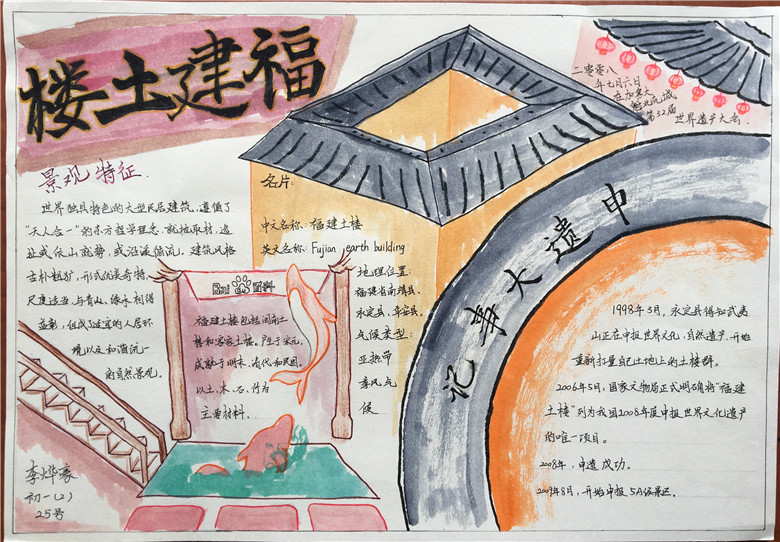 福建土楼
二零零八
年七月六日
在加拿大
魁北克城
第32届
世界遗产大会.
景观特征.
世界独具特色的大型民居建筑，遵循了
"天人合一"的东方哲学理念.就地取材，选
址或依山就势，或沿溪傍流.建筑风格
古朴粗犷，形式优美奇特，
尺度适当，与青山、绿水相得
益彰，组成了适宜的人居环
境以及和谐统一
的自然景观.
名片:
中文名称:福建土楼
英文名称: Fujian earth building
地理位置:
福建省南靖县、
永定县、华安县.
气候类型:
亚热带
季风气
候
Bai 百科
福建土楼包括闽南土
楼和客家土楼。产生于宋元，
成熟于明末、清代和民国。
以土、木、石、竹为
主要材料.
申遗大事记
1998年5月，永定县得知武夷
山正在申报世界文化，自然遗产.开始
重新打量自己土地上的土楼群。
2006年5月，国家文物局正式明确将"福建
土楼"列为我国2008年度申报世界文化遗产
的唯一项目。
2008年，申遗成功.
2009年8月，开始申报5A级景区.
李烨豪
初一(2)
25号